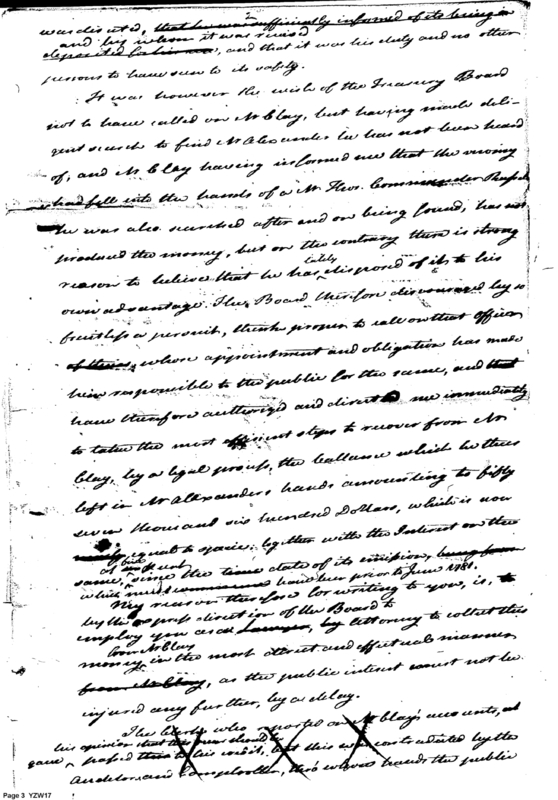 was directed, that he was sufficiently informed of its being in
and by whom it was received
deposited for him, and that it was his duty and no other
persons to have seen to its safety.
It was however the wish of the Treasury Board
not to have called on Mr Clay, but having made deli-
gent search to find Mr Alexander he has not been heard
of, and Mr Clay having informed me that the money
had fell into the hands of a Mr Thos.
he was also searched after and on being found, has not
produced the money, but on the contrary there is strong
reason to believe that he has lately disposed of it to his
own advantage. The Board therefore discouraged by so
fruitless a persuit, think proper to call on that officer
of theirs, whose appointment and obligation has made
him responsible to the public for the same, and that
have therefore authorized and directed me immediately
to take the most efficient steps to recover from Mr
Clay, by a legal process, the ballance which he thus
left in Mr Alexanders hands amounting to fifty
seven thousand six hundred Dollars, which is now
equal to specie together with the Interest on the
same, since the time date of its emission,
which must have been prior to June 1781.
My reason therefore for writing to you, is, to
by the express direction of the Board to
employ you as a Lawyer, by Attorney to collect this
from Mr Clay
money in the most direct and effectual manner
from Mr Clay, as the public interest must not be
injured any further, by a delay.
The Clerk who reported on Mr Clay's accounts, as
his opinion that this sum should be
gave, passed thus to his credit, but this was contradicted by the
Auditor and Comptroller, thro' whose hands the public
Page 3 YZW17